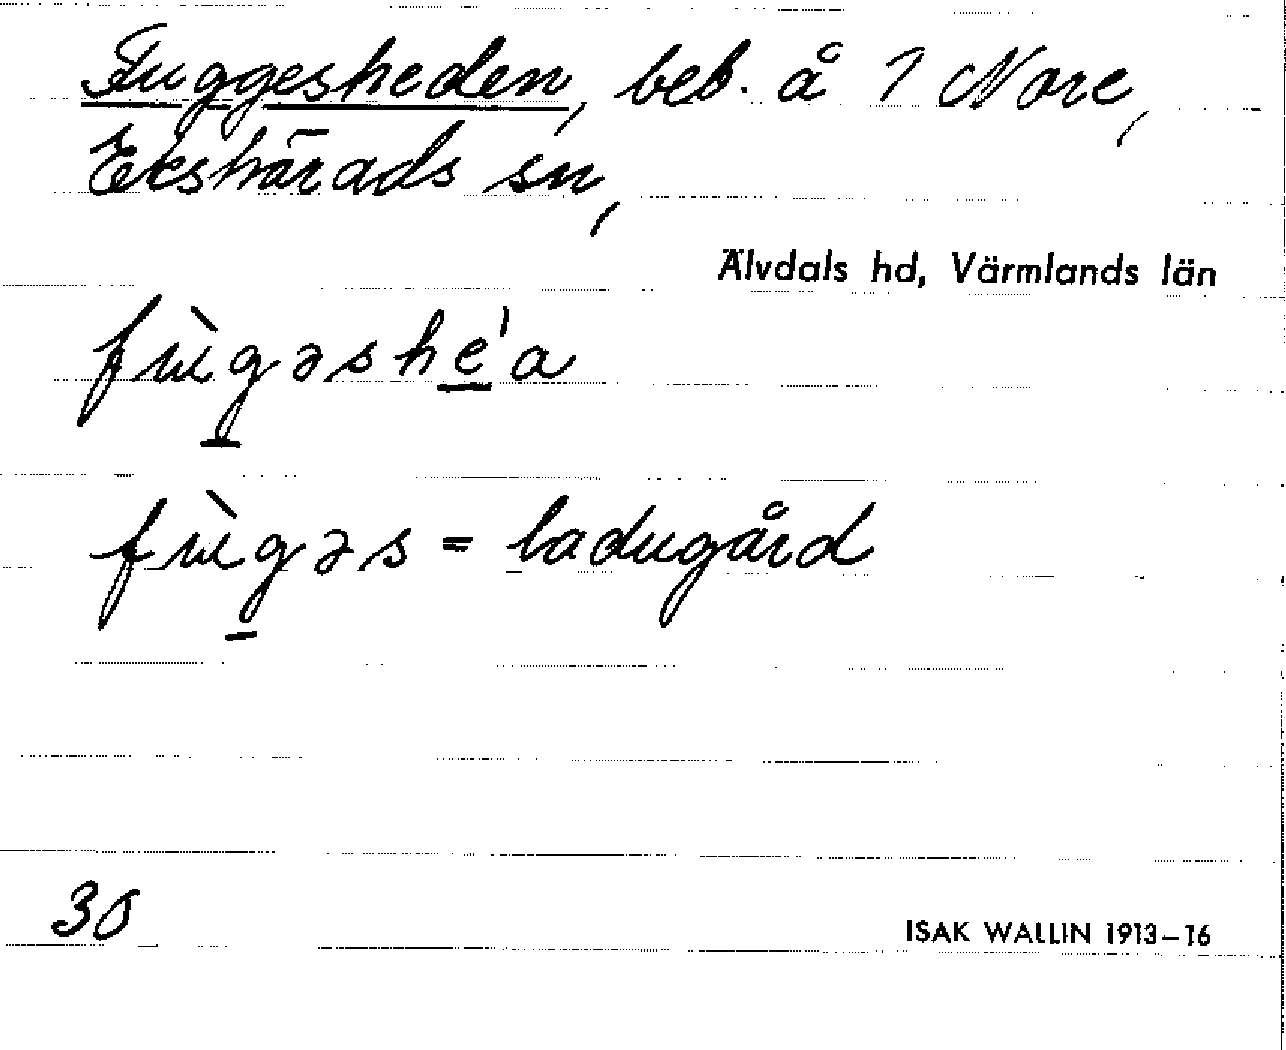 Fuggesheden, beb. å 1 Nore,
Ekshärads sn,
Älvdals hd, Värmlands län
fùg̲əshe̲'a
fùg̲əs = ladugård
30
ISAK WALLIN 1913–16